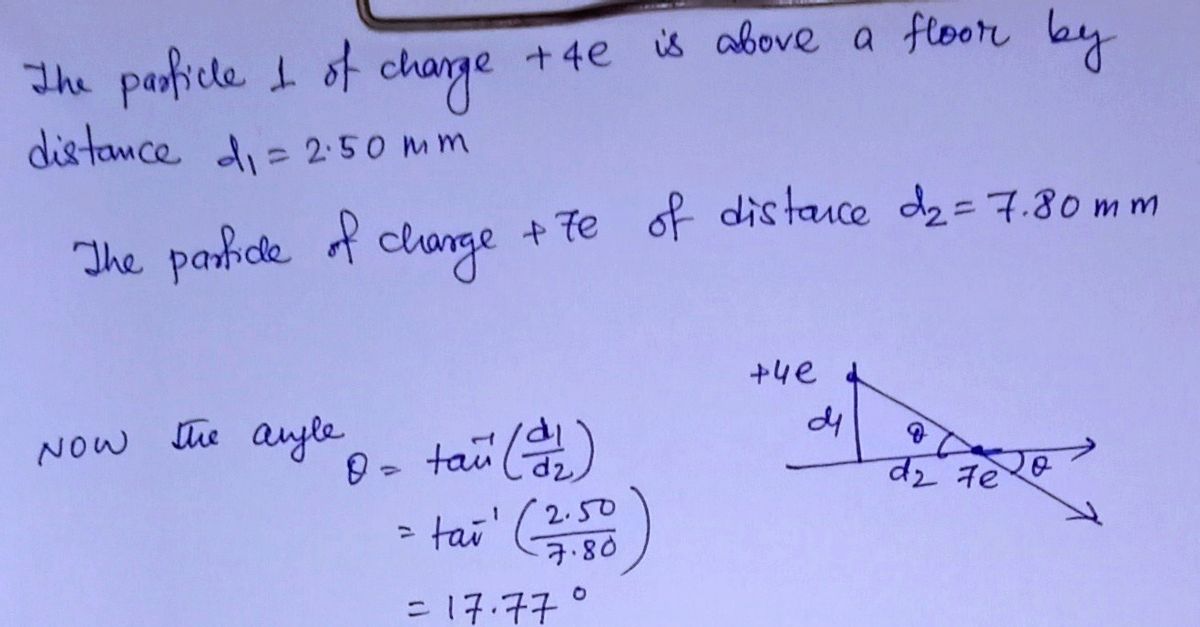 The particle 1 of charge +4e is above a floor by
distance d₁ = 2.50 mm
The particle of charge +7e of distance d₂ = 7.80 mm
+4e
d₁
θ
d₂ 7e θ
NOW the angle
θ = tan⁻¹(d₁/d₂)
= tan⁻¹(2.50/7.80)
= 17.77°